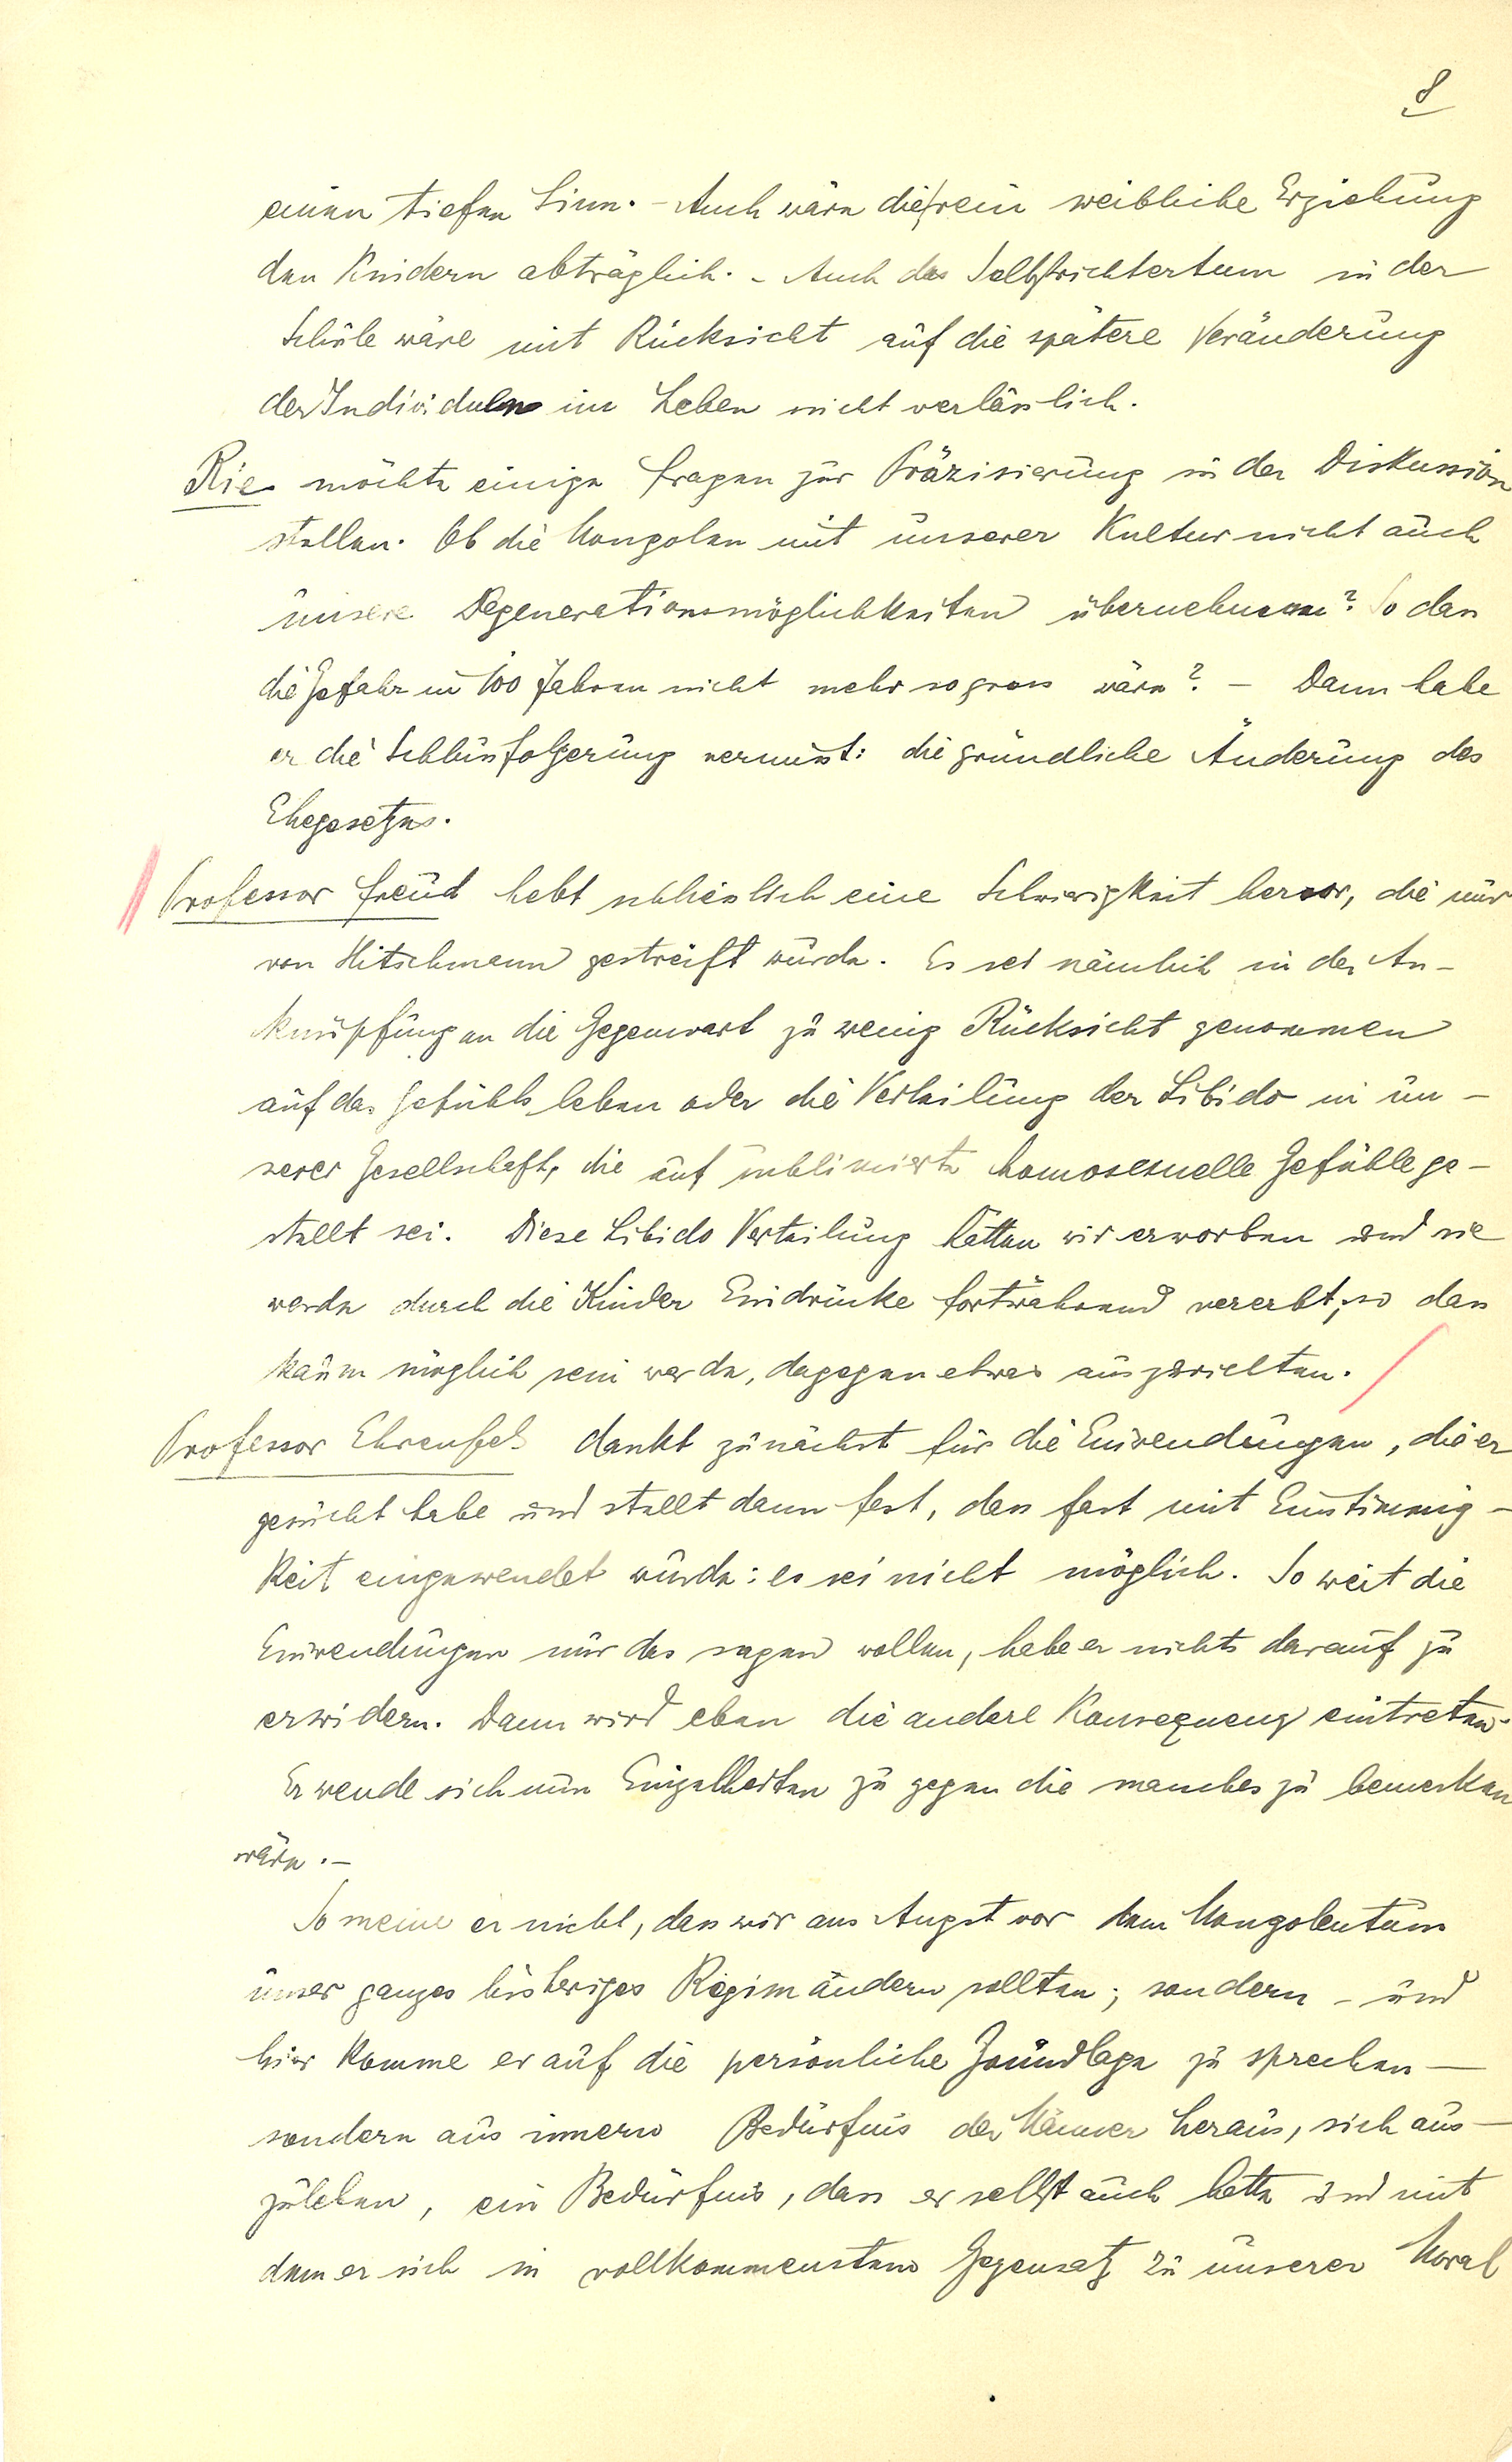 8
einen tiefen Sinn. – Auch wäre die rein weibliche Erziehung
den Kindern abträglich. – Auch das Selbstrichtertum in der
Schule wäre mit Rücksicht auf die spätere Veränderung
der Individuen im Leben nicht verlässlich.
Rie möchte einige Fragen zur Präzisierung in der Diskussion
stellen. Ob die Mongolen mit unserer Kultur nicht auch
unsere Degenerationsmöglichkeiten übernehmen? So dass
die Gefahr in 100 Jahren nicht mehr so gross wäre? – Dann habe
er die Schlussfolgerung vermisst: die gründliche Änderung des
Ehegesetzes.
Professor Freud hebt schliesslich eine Schwierigkeit hervor, die nur
von Hitschmann gestreift wurde. Es sei nämlich in der An-
knüpfung an die Gegenwart zu wenig Rücksicht genommen
auf das Gefühlsleben oder die Verteilung der Libido in un-
serer Gesellschaft, die auf sublimierte homosexuelle Gefühle ge-
stellt sei. Diese Libido Verteilung hätten wir erworben und sie
werde durch die Kinder Eindrücke fortwährend vererbt, so dass
kaum möglich sein werde, dagegen etwas auszurichten.
Professor Ehrenfels dankt zunächst für die Einwendungen, die er
gesucht habe und stellt dann fest, dass fast mit Einstimmig-
keit eingewendet wurde: es sei nicht möglich. So weit die
Einwendungen nur das sagen wollen, habe er nichts darauf zu
erwidern. Dann wird eben die andere Konsequenz eintreten.
Er wende sich nun Einzelheiten zu gegen die manches zu bemerken
wäre. –
So meine er nicht, dass wir aus Angst vor dem Mongolentum
unser ganzes bisheriges Regim ändern sollten; sondern – und
hier komme er auf die persönliche Grundlage zu sprechen –
sondern aus innern Bedürfnis der Männer heraus, sich aus-
zuleben, ein Bedürfnis, dass er selbst auch hatte und mit
dem er sich in vollkommenstem Gegensatz zu unserer Moral